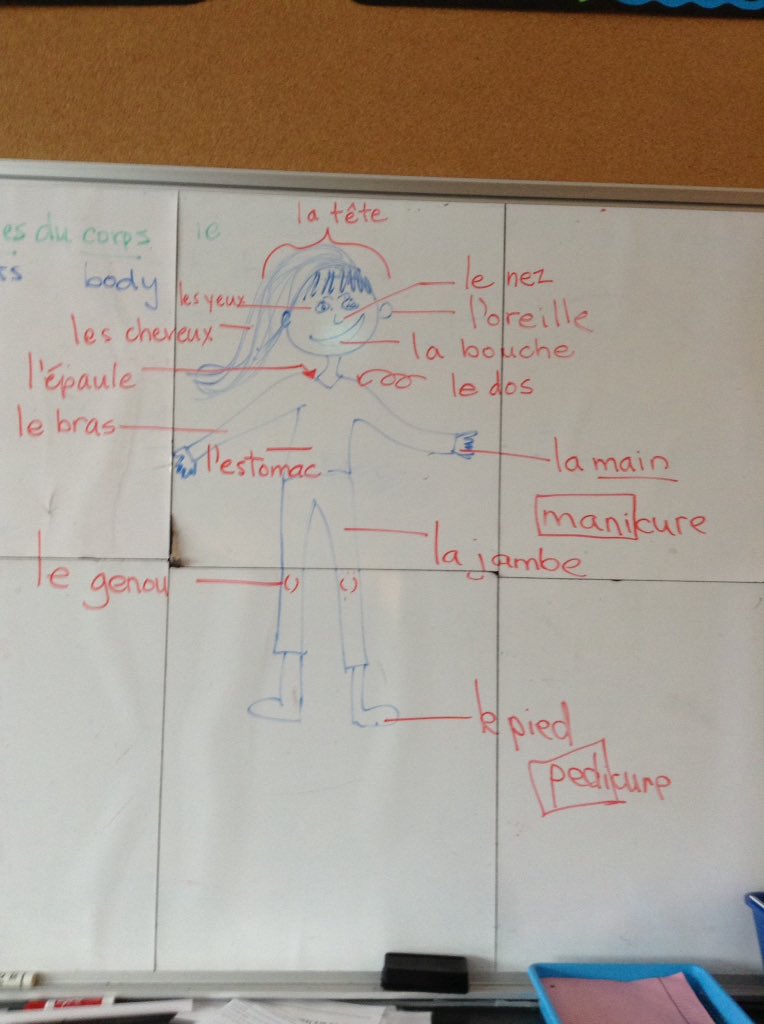 la tête
es du corps
body
le nez
les yeux
l'oreille
les cheveux
la bouche
l'épaule
le dos
le bras
l'estomac
la main
manicure
la jambe
le genou
le pied
pedicure